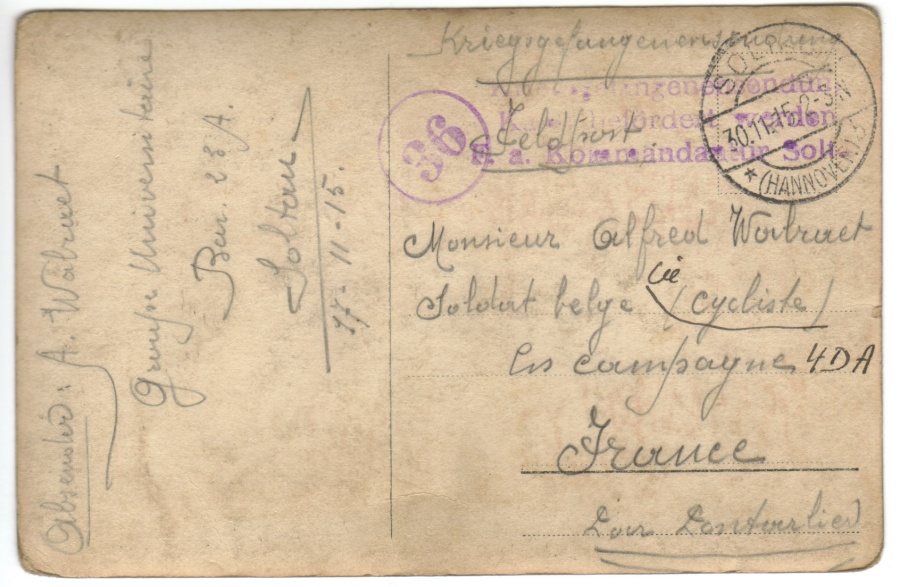 Absender: A. Walraet
Groupe Universitaire
Bar. 23A.
Soltau
17-11-15.
Kriegsgefangenensendung
Feldpost.
36
Kriegsgefangenensendung
Kann befördert werden
S. a. Kommandantur Solt
SOLTAU
30.11.15.2-3N
★(HANNOVER)
Monsieur Alfred Walraet
Soldat belge cie (cycliste)
En campagne 4DA
France
Voir Pontarlier